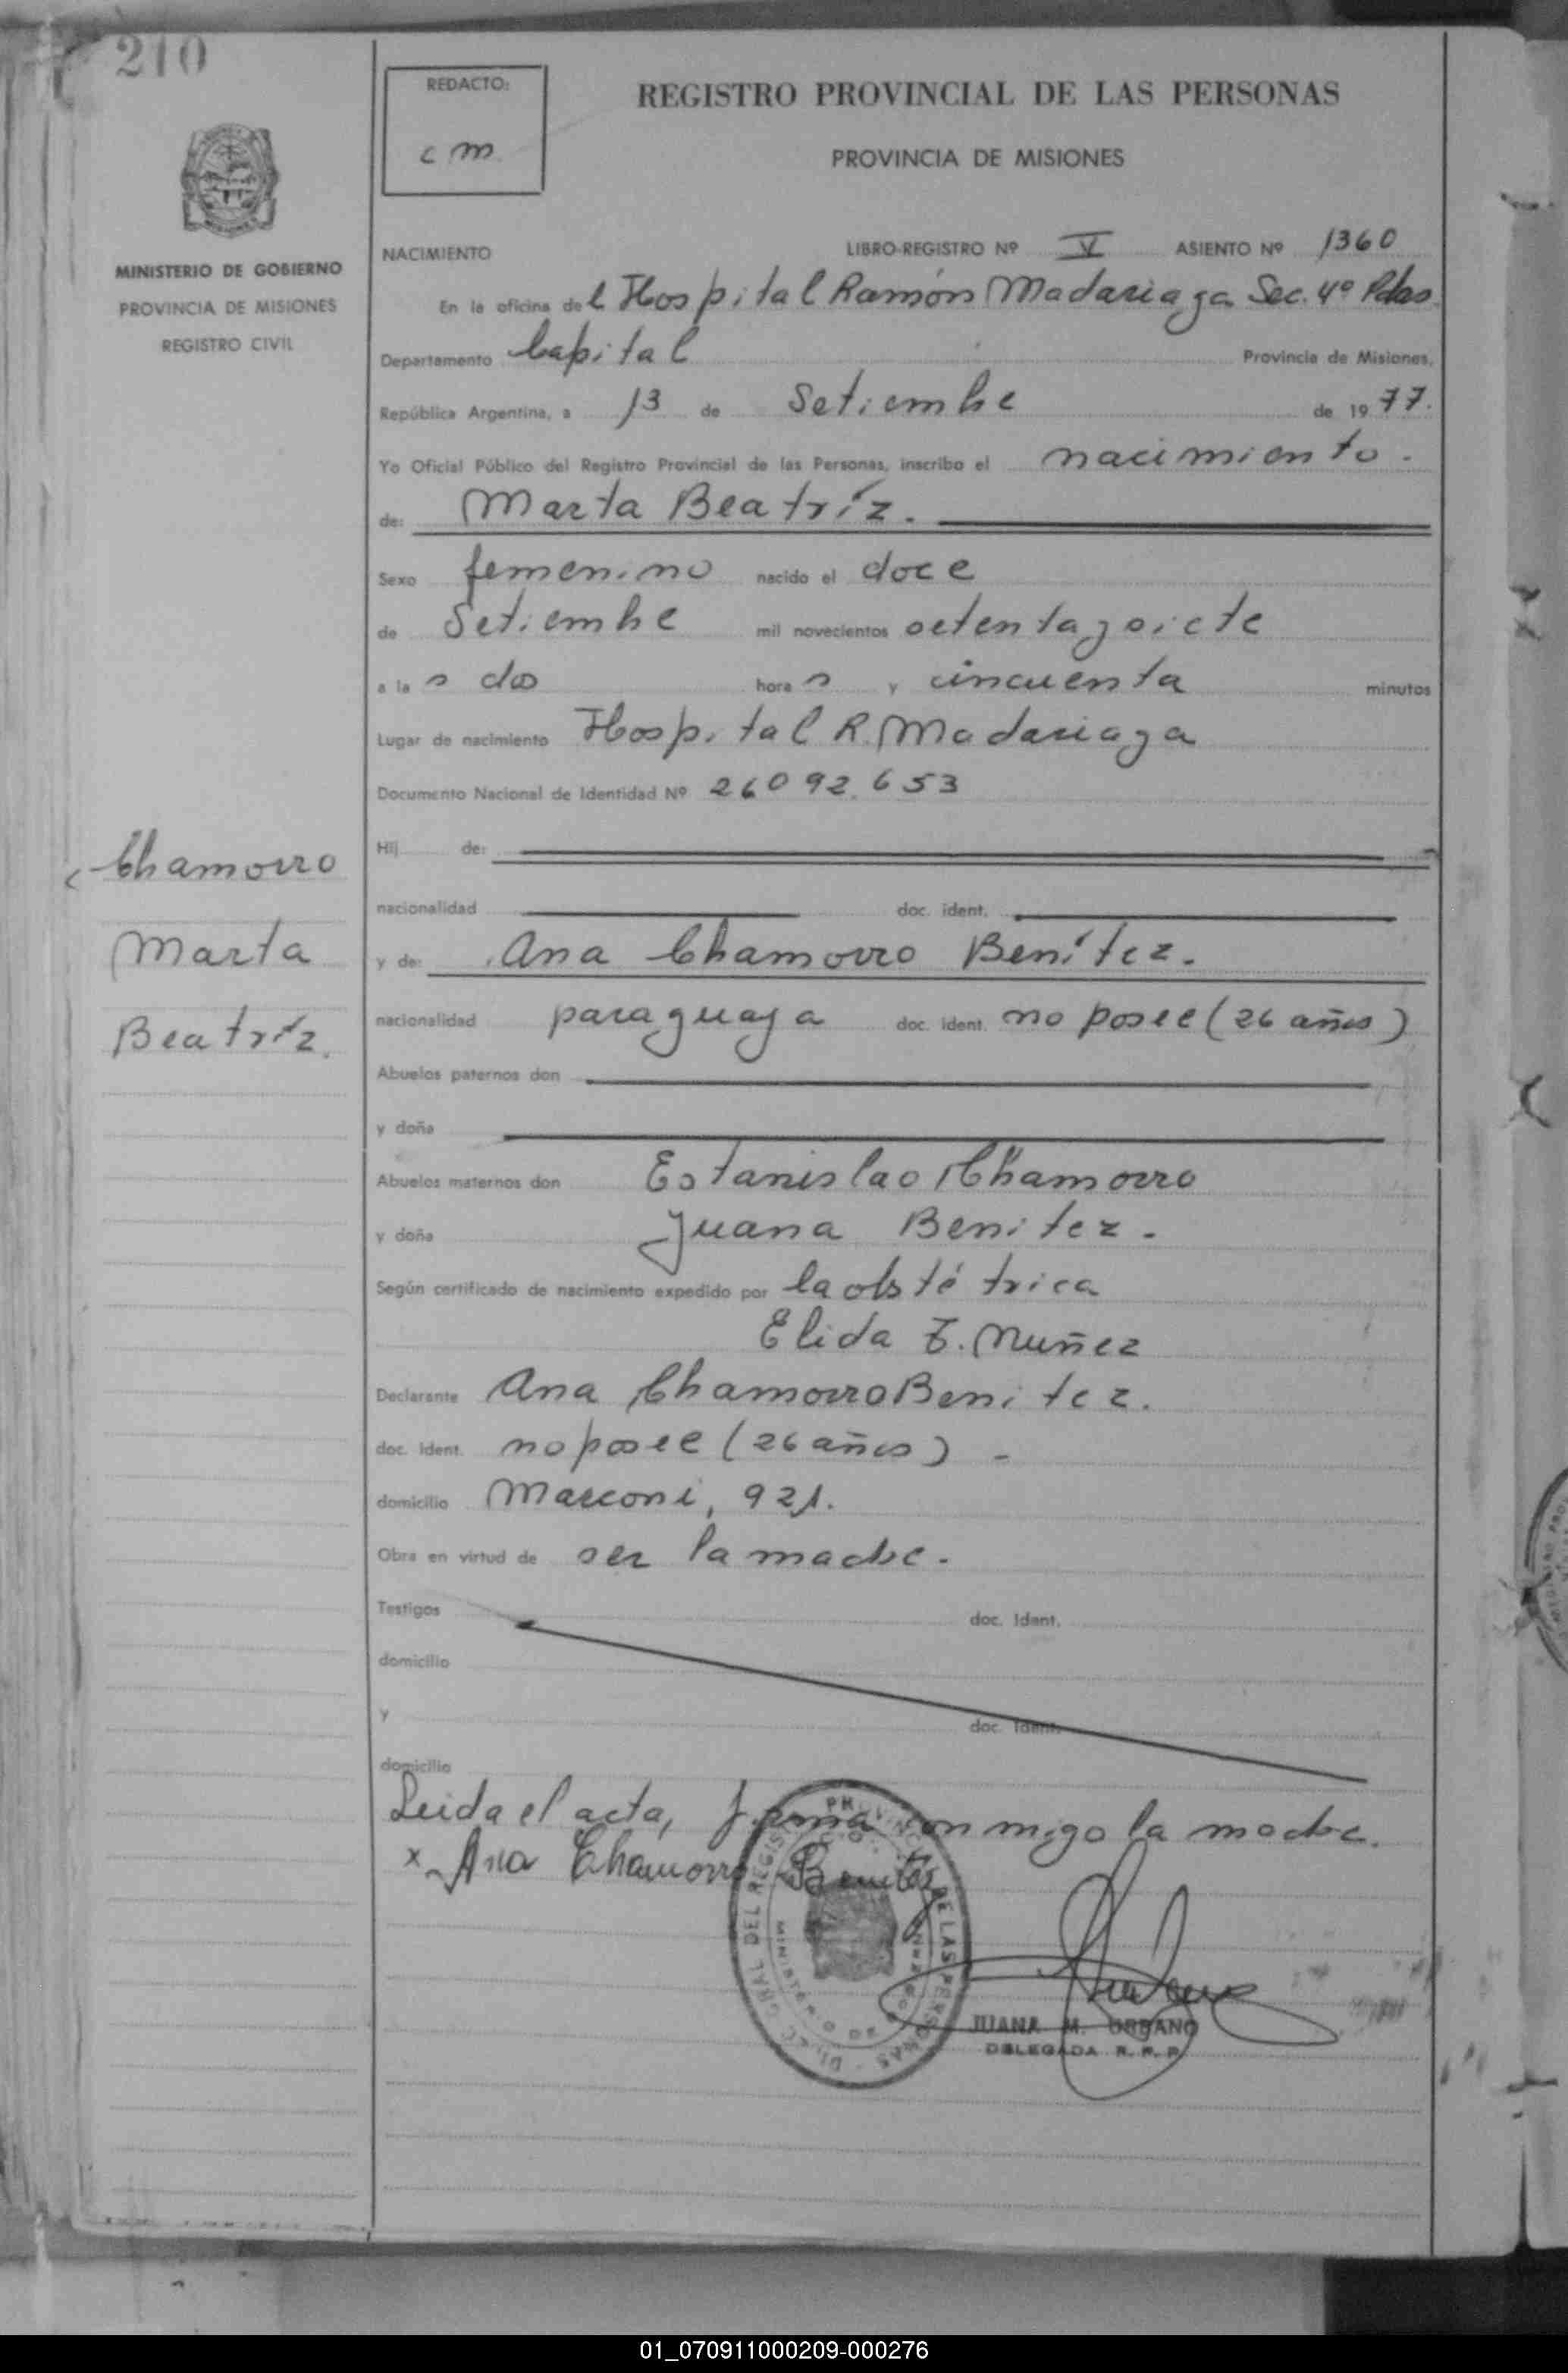 210
REDACTO:
c m.
REGISTRO PROVINCIAL DE LAS PERSONAS
PROVINCIA DE MISIONES
MINISTERIO DE GOBIERNO
PROVINCIA DE MISIONES
REGISTRO CIVIL
NACIMIENTO LIBRO-REGISTRO Nº V ASIENTO Nº 1360
En la oficina del Hospital Ramón Madariaga Sec. 4º Pdas
Departamento Capital Provincia de Misiones.
República Argentina, a 13 de Setiembre de 1977.
Yo Oficial Público del Registro Provincial de las Personas, inscribo el nacimiento.
de: Marta Beatríz.
Sexo femenino nacido el doce
de Setiembre mil novecientos setenta y siete
a las dos horas y cincuenta minutos
Lugar de nacimiento Hospital R. Madariaga
Documento Nacional de Identidad Nº 26092.653
Chamorro
Marta
Beatríz.
Hij de:
nacionalidad doc. ident.
y de: Ana Chamorro Benítez.
nacionalidad paraguaya doc. ident. no posee (26 años)
Abuelos paternos don
y doña
Abuelos maternos don Estanislao Chamorro
y doña Juana Benitez.
Según certificado de nacimiento expedido por la obstétrica
Elida F. Nuñez
Declarante Ana Chamorro Benitez.
doc. Ident. no posee (26 años) -
domicilio Marconi, 921.
Obra en virtud de ser la madre.
Testigos doc. Ident.
domicilio
y doc. Ident.
domicilio
Leida el acta, firma conmigo la madre.
x Ana Chamorro Benitez
JUANA M. URBANO
DELEGADA R. P. P.
01_070911000209-000276